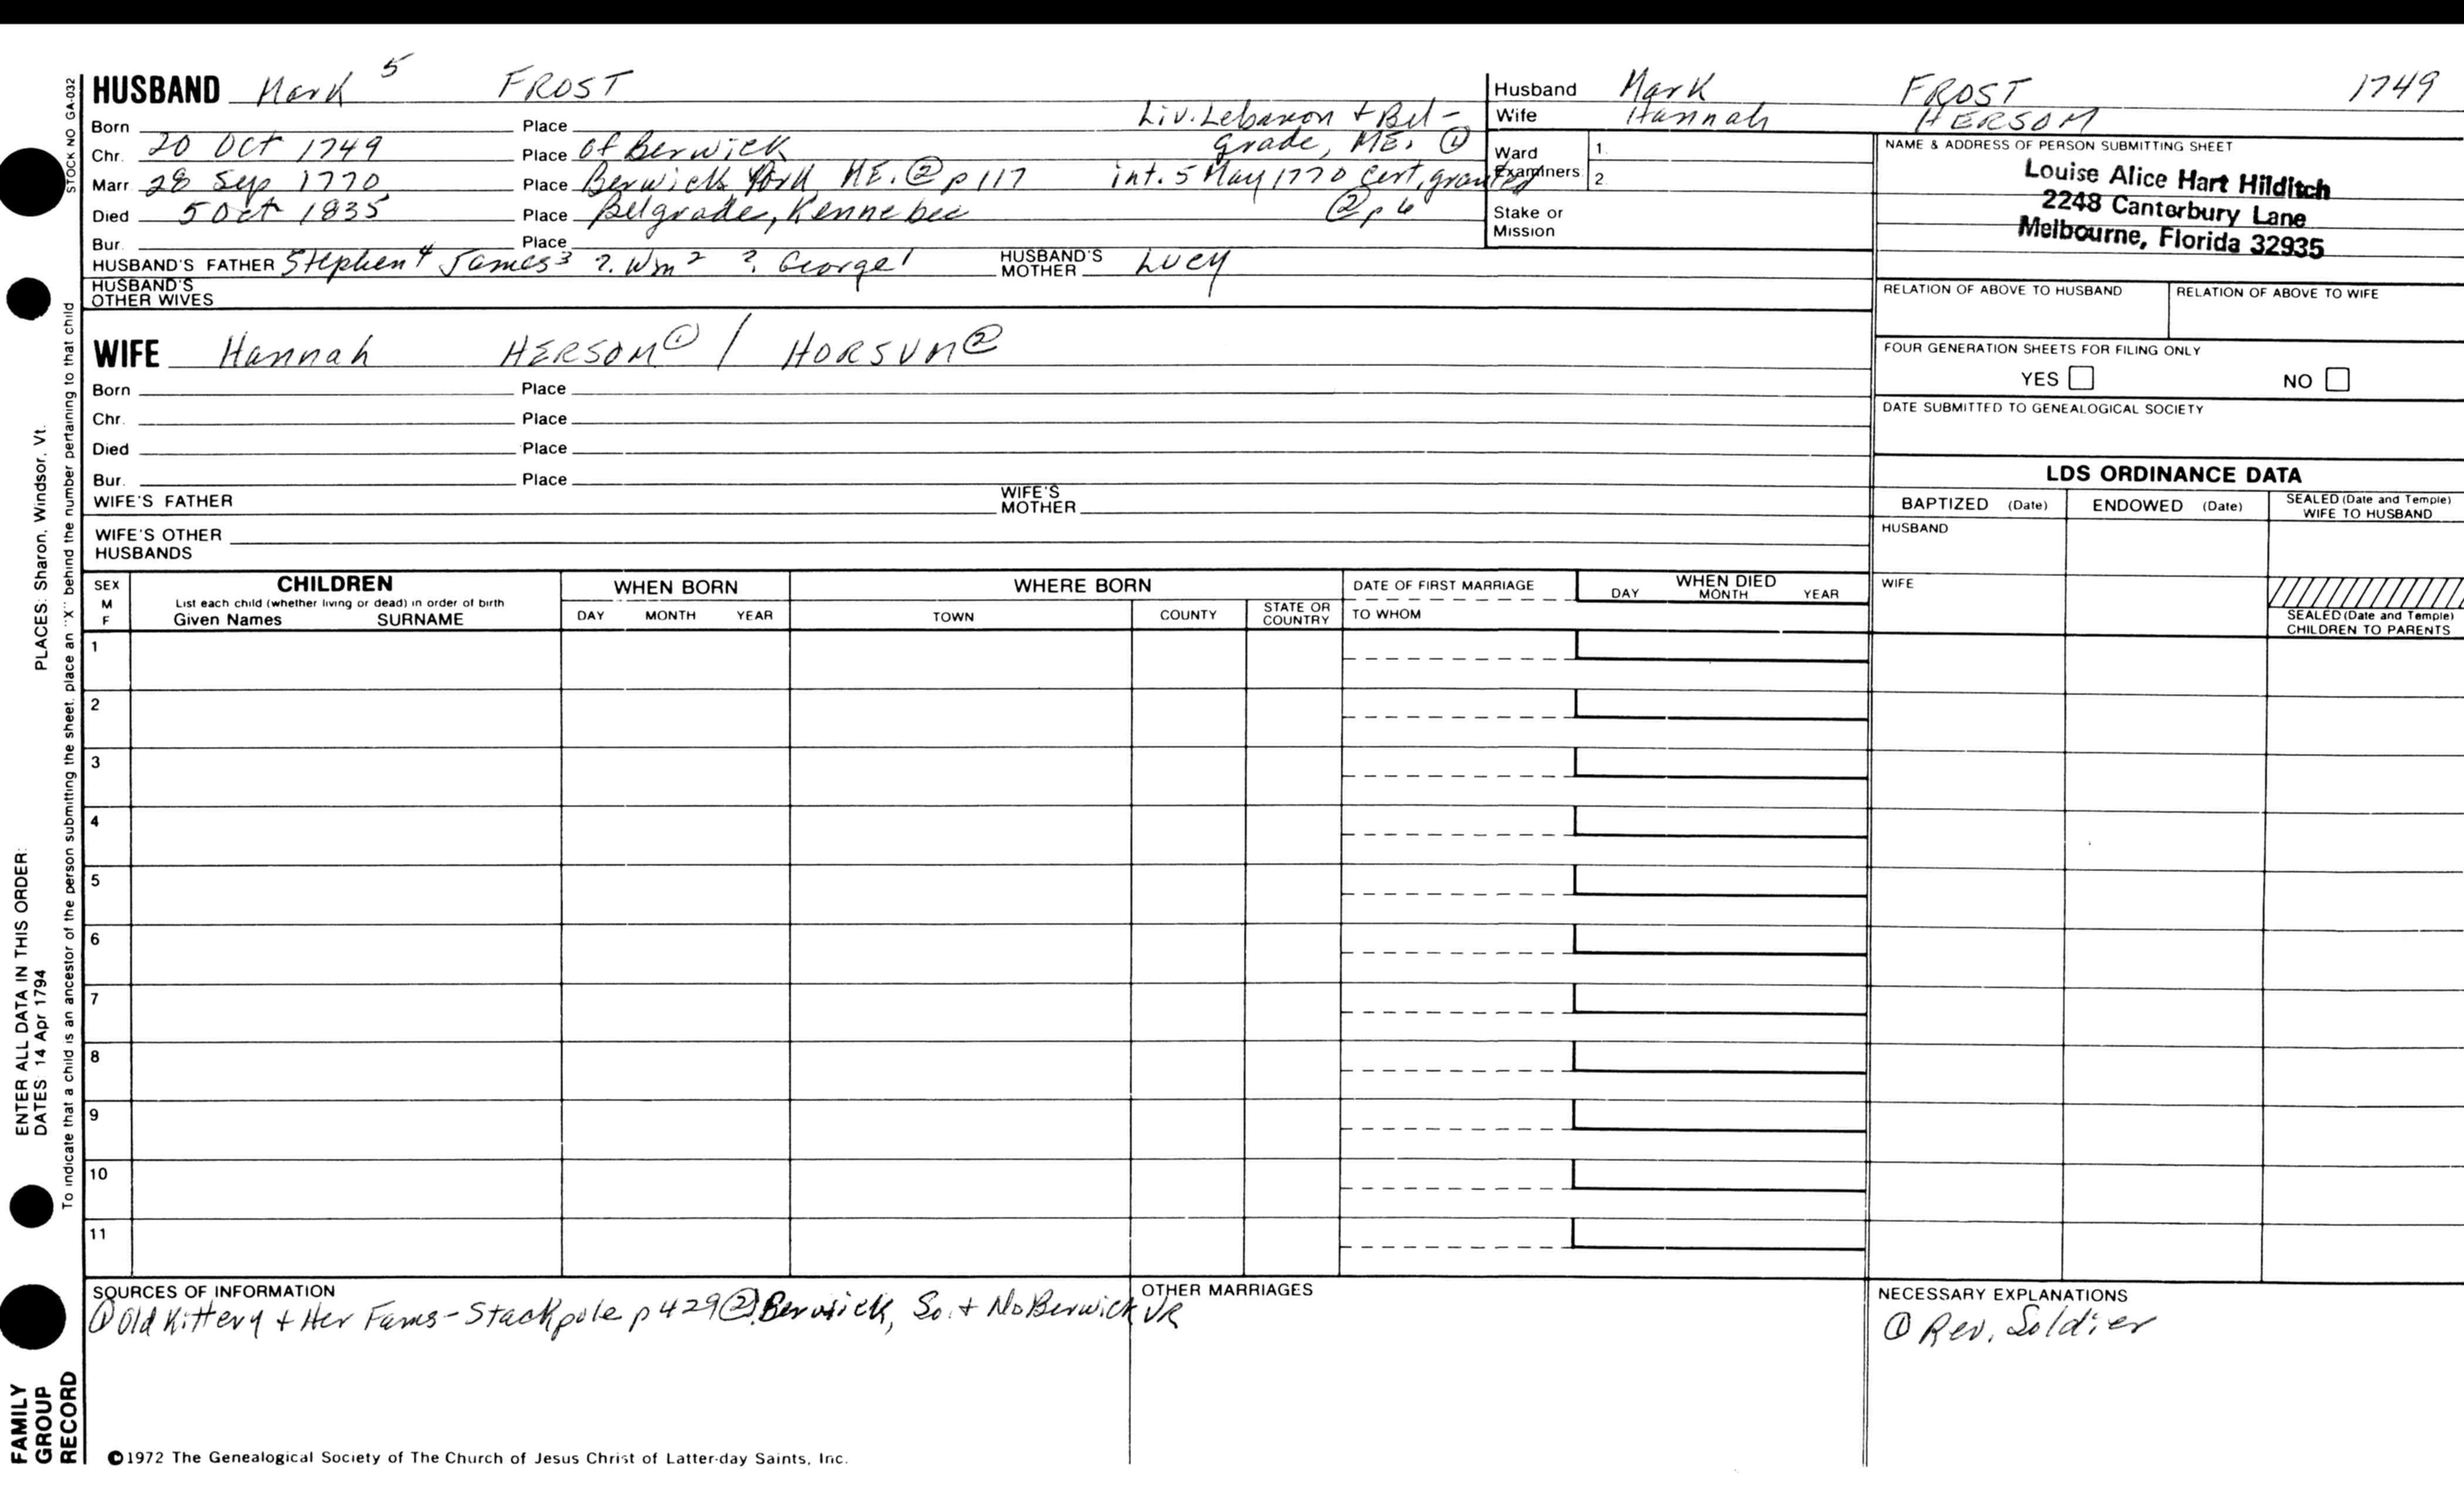 HUSBAND Mark 5 FROST
Born Place Liv. Lebanon + Bel-
Chr. 20 Oct 1749 Place of Berwick grade, ME. ①
Marr. 28 Sep 1770 Place Berwick York ME. ② p 117 int. 5 May 1770 Cert, granted
Died 5 Oct 1835 Place Belgrade, Kennebec ② p 6
Bur. Place
HUSBAND'S FATHER Stephen4 James3 ?. Wm2 ?. George1 HUSBAND'S MOTHER Lucy
HUSBAND'S OTHER WIVES
Husband Mark FROST 1749
Wife Hannah HERSOM
Ward 1.
Examiners 2.
Stake or Mission
NAME & ADDRESS OF PERSON SUBMITTING SHEET
Louise Alice Hart Hilditch
2248 Canterbury Lane
Melbourne, Florida 32935
RELATION OF ABOVE TO HUSBAND RELATION OF ABOVE TO WIFE
FOUR GENERATION SHEETS FOR FILING ONLY
YES NO
DATE SUBMITTED TO GENEALOGICAL SOCIETY
WIFE Hannah HERSOM① / HORSUM②
Born Place
Chr. Place
Died Place
Bur. Place
WIFE'S FATHER WIFE'S MOTHER
WIFE'S OTHER HUSBANDS
LDS ORDINANCE DATA
BAPTIZED (Date) ENDOWED (Date) SEALED (Date and Temple) WIFE TO HUSBAND
HUSBAND
WIFE
SEALED (Date and Temple) CHILDREN TO PARENTS
SEX M F CHILDREN WHEN BORN WHERE BORN DATE OF FIRST MARRIAGE WHEN DIED
List each child (whether living or dead) in order of birth
Given Names SURNAME DAY MONTH YEAR TOWN COUNTY STATE OR COUNTRY TO WHOM DAY MONTH YEAR
1
2
3
4
5
6
7
8
9
10
11
SOURCES OF INFORMATION
① Old Kittery + Her Fams - Stackpole p 429 ② Berwick, So. + No Berwick VR
OTHER MARRIAGES
NECESSARY EXPLANATIONS
① Rev. Soldier
©1972 The Genealogical Society of The Church of Jesus Christ of Latter-day Saints, Inc.
STOCK NO GA-032
To indicate that a child is an ancestor of the person submitting the sheet, place an "X" behind the number pertaining to that child
ENTER ALL DATA IN THIS ORDER:
DATES: 14 Apr 1794
PLACES: Sharon, Windsor, Vt.
FAMILY
GROUP
RECORD